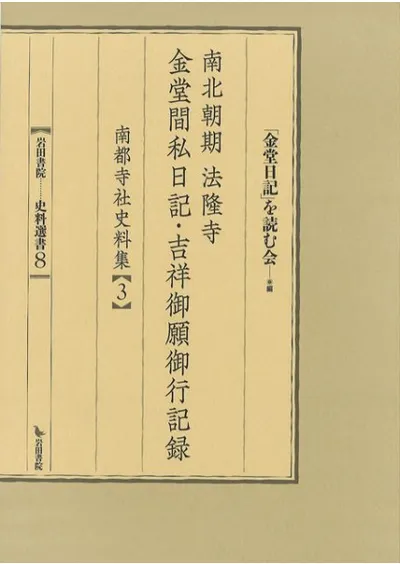 「金堂日記」を読む会──*編
南北朝期 法隆寺
金堂間私日記・吉祥御願御行記録
南都寺社史料集【3】
【岩田書院……史料選書8】
岩田書院